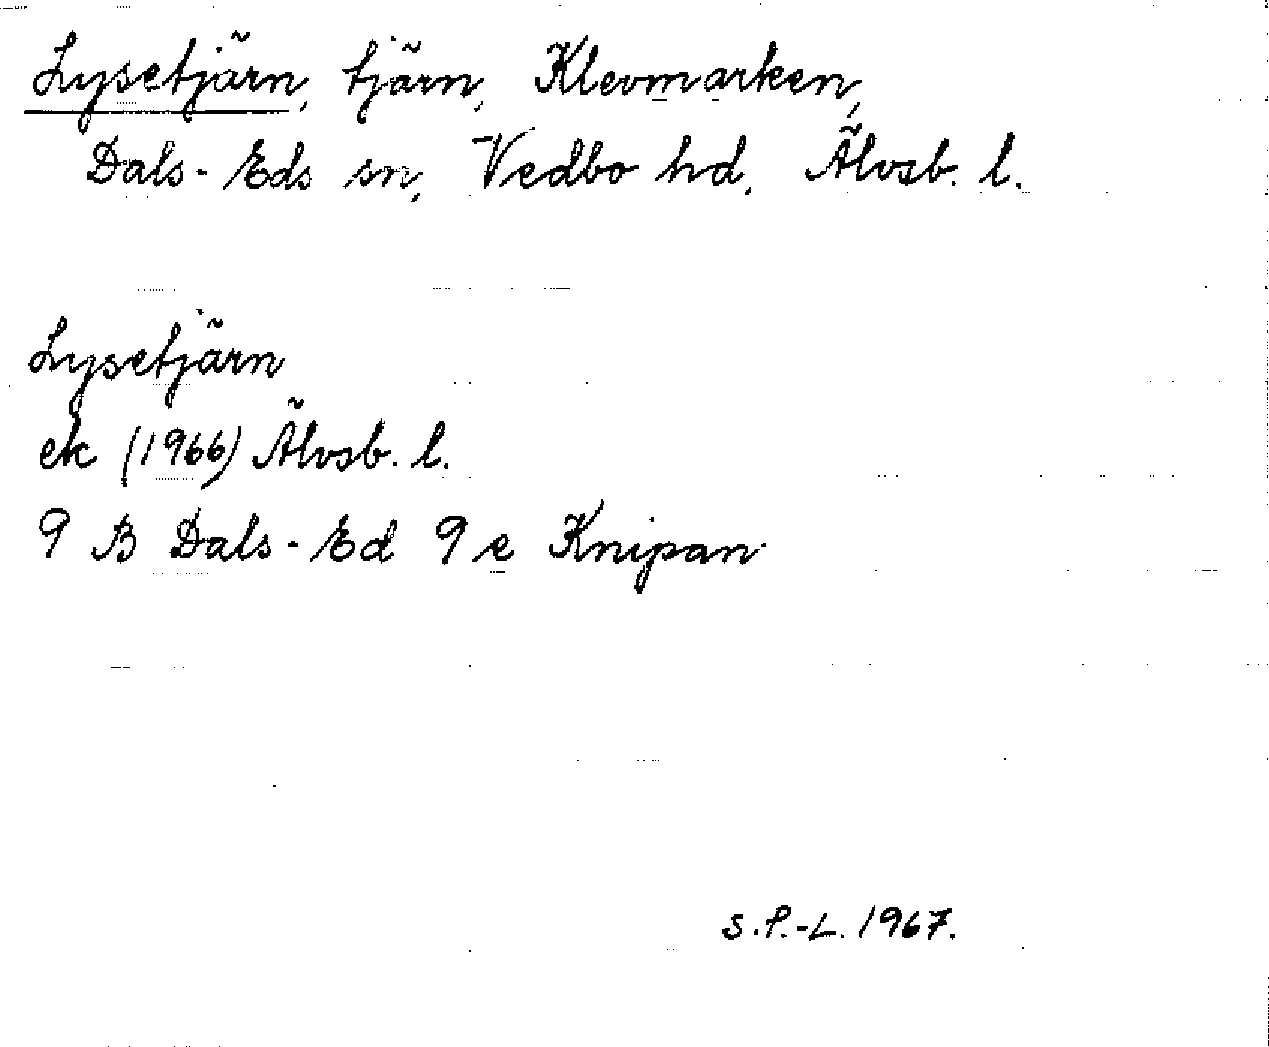 Lysetjärn, tjärn, Klevmarken,
Dals-Eds sn, Vedbo hd, Älvsb. l.
Lysetjärn
ek (1966) Älvsb. l.
9 B Dals-Ed 9 e Knipan
S.P.-L. 1967.